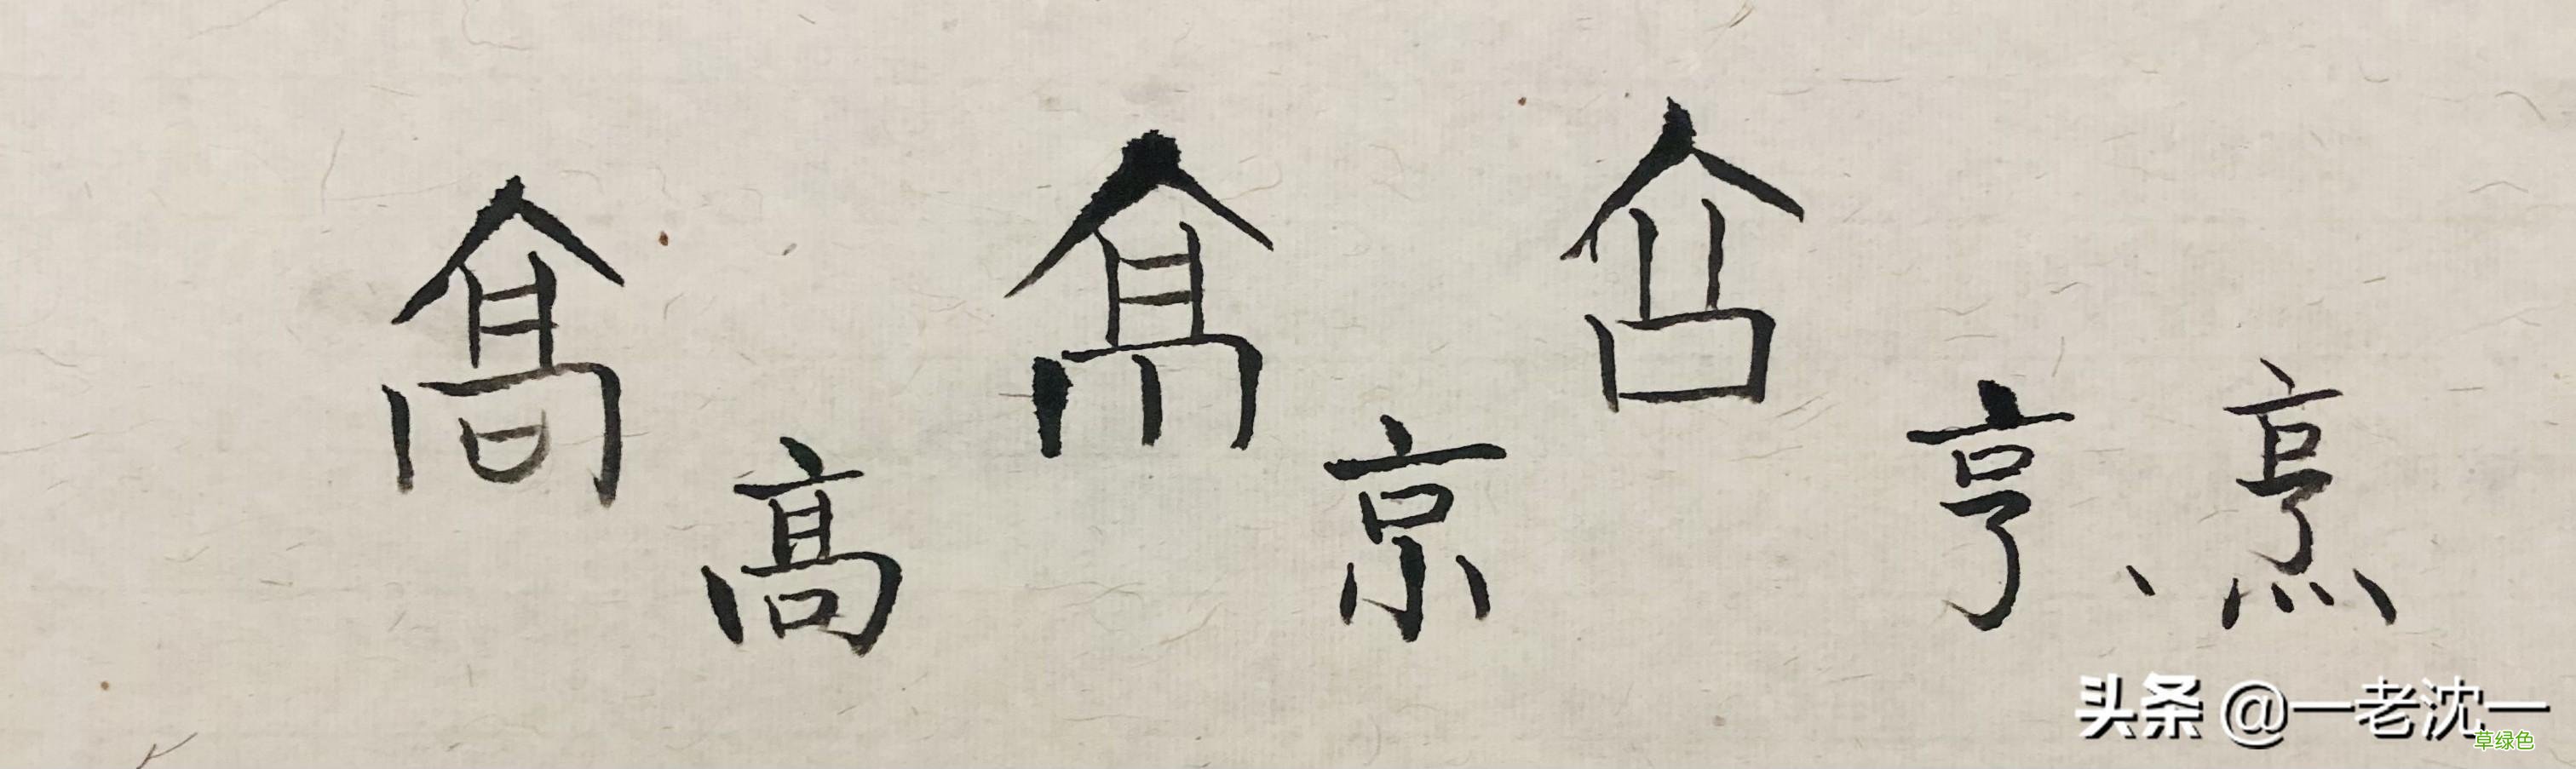 髙 京 亨、烹
头条 @一老沈一
草绿色